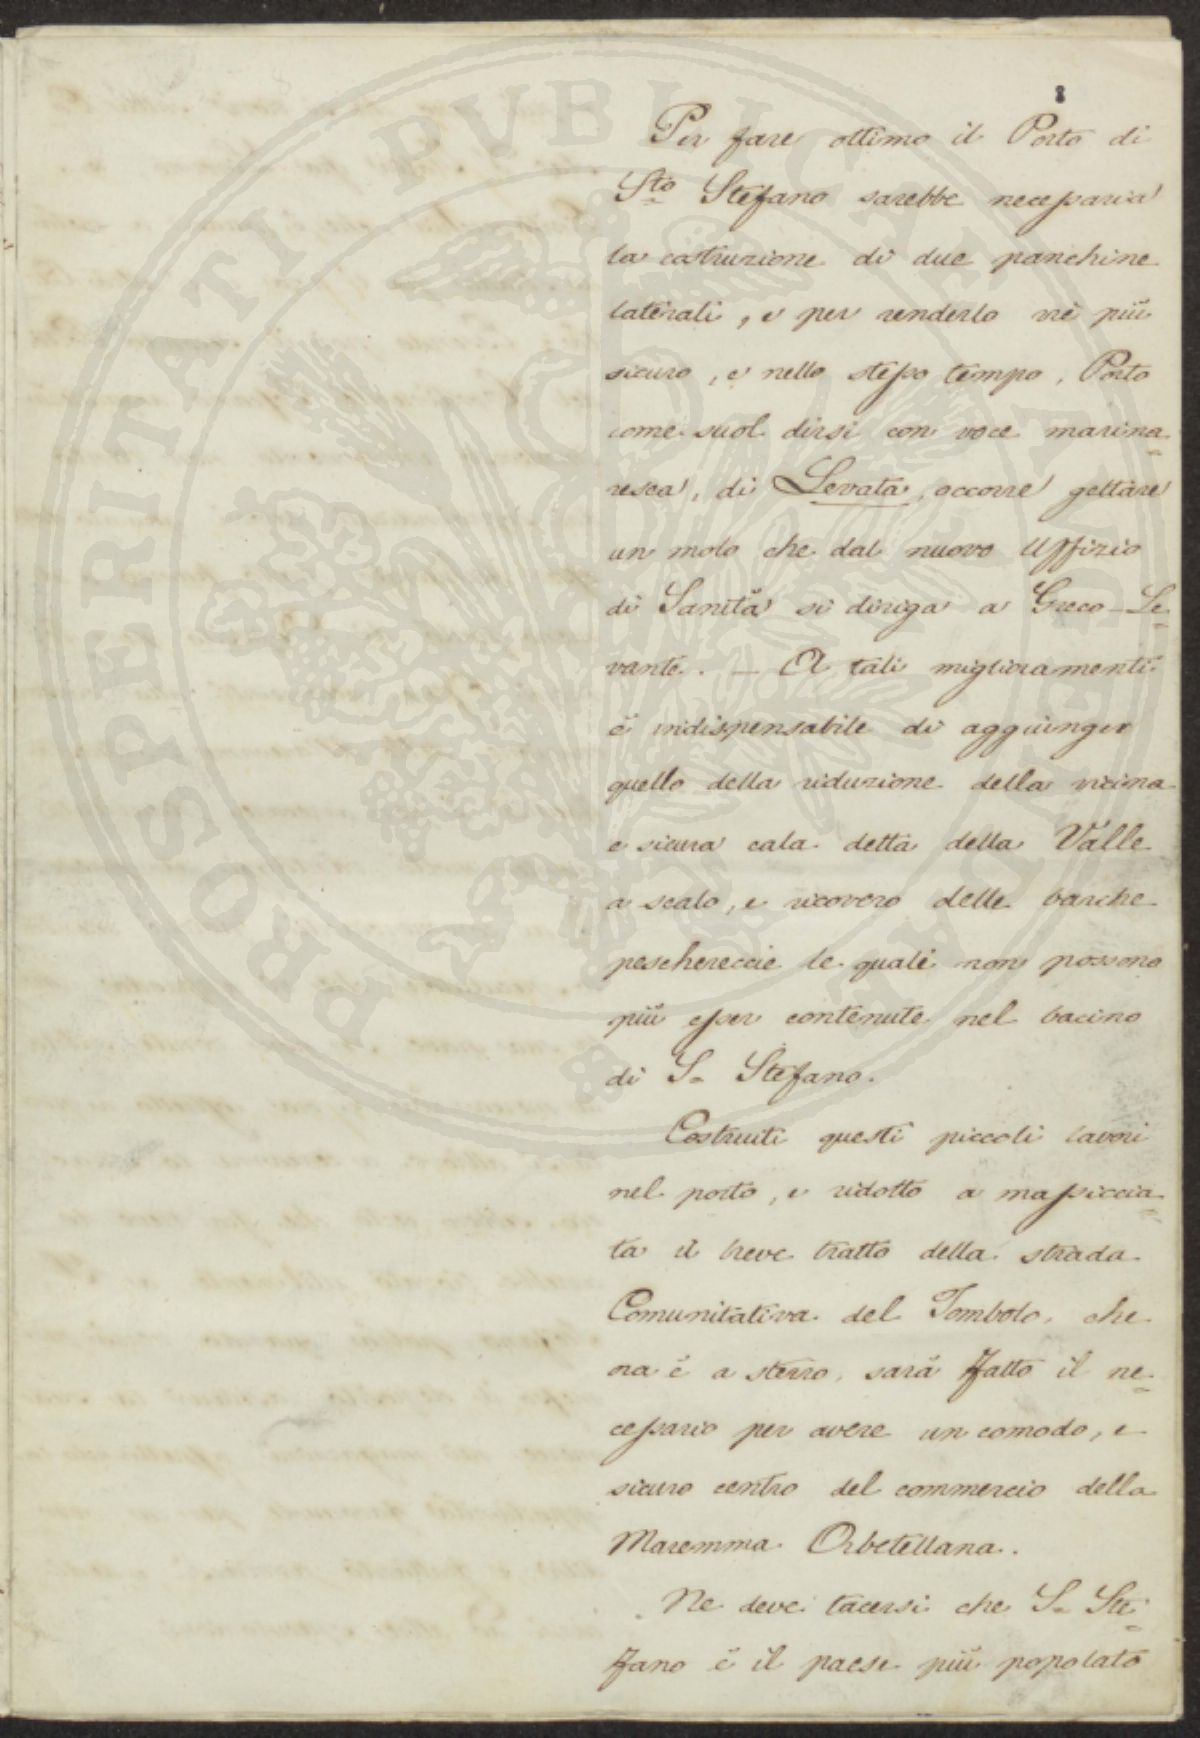 8
Per fare ottimo il Porto di
Sto Stefano sarebbe necessaria
la costruzione di due panchine
laterali, e per renderlo viè più
sicuro, e nello stesso tempo, Porto
come suol dirsi con voce marina=
resca, di Levata, occorre gettare
un molo che dal nuovo Uffizio
di Sanità si diriga a Greco-Le=
vante. — A tali miglioramenti
è indispensabile di aggiunger
quello della riduzione della vicina
e sicura cala detta della Valle
a scalo, e ricovero delle barche
pescherecce le quali non possono
più esser contenute nel bacino
di S. Stefano.
Costruiti questi piccoli lavori
nel porto, e ridotto a massiccia=
ta il breve tratto della strada
Comunitativa del Tombolo, che
ora è a sterro, sarà fatto il ne=
cessario per avere un comodo, e
sicuro centro del commercio della
Maremma Orbetellana.
Ne deve tacersi che S. Ste=
fano è il paese più popolato
PROSPERITATI PVBLICAE AVGENDAE